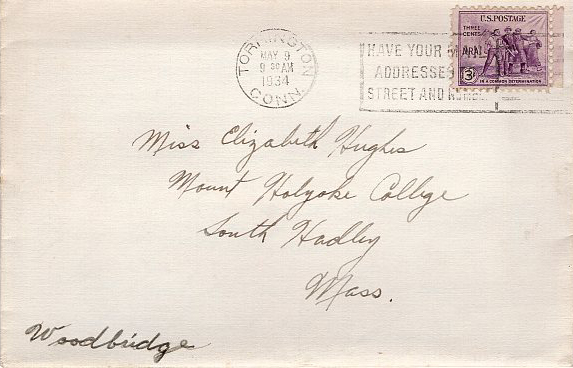 TORRINGTON
MAY 9
9 30 AM
1934
CONN.
HAVE YOUR MAIL
ADDRESSED
STREET AND
U.S. POSTAGE
THREE CENTS
3¢
IN A COMMON DETERMINATION
Miss Elizabeth Hughes
Mount Holyoke College
South Hadley
Mass.
Woodbridge